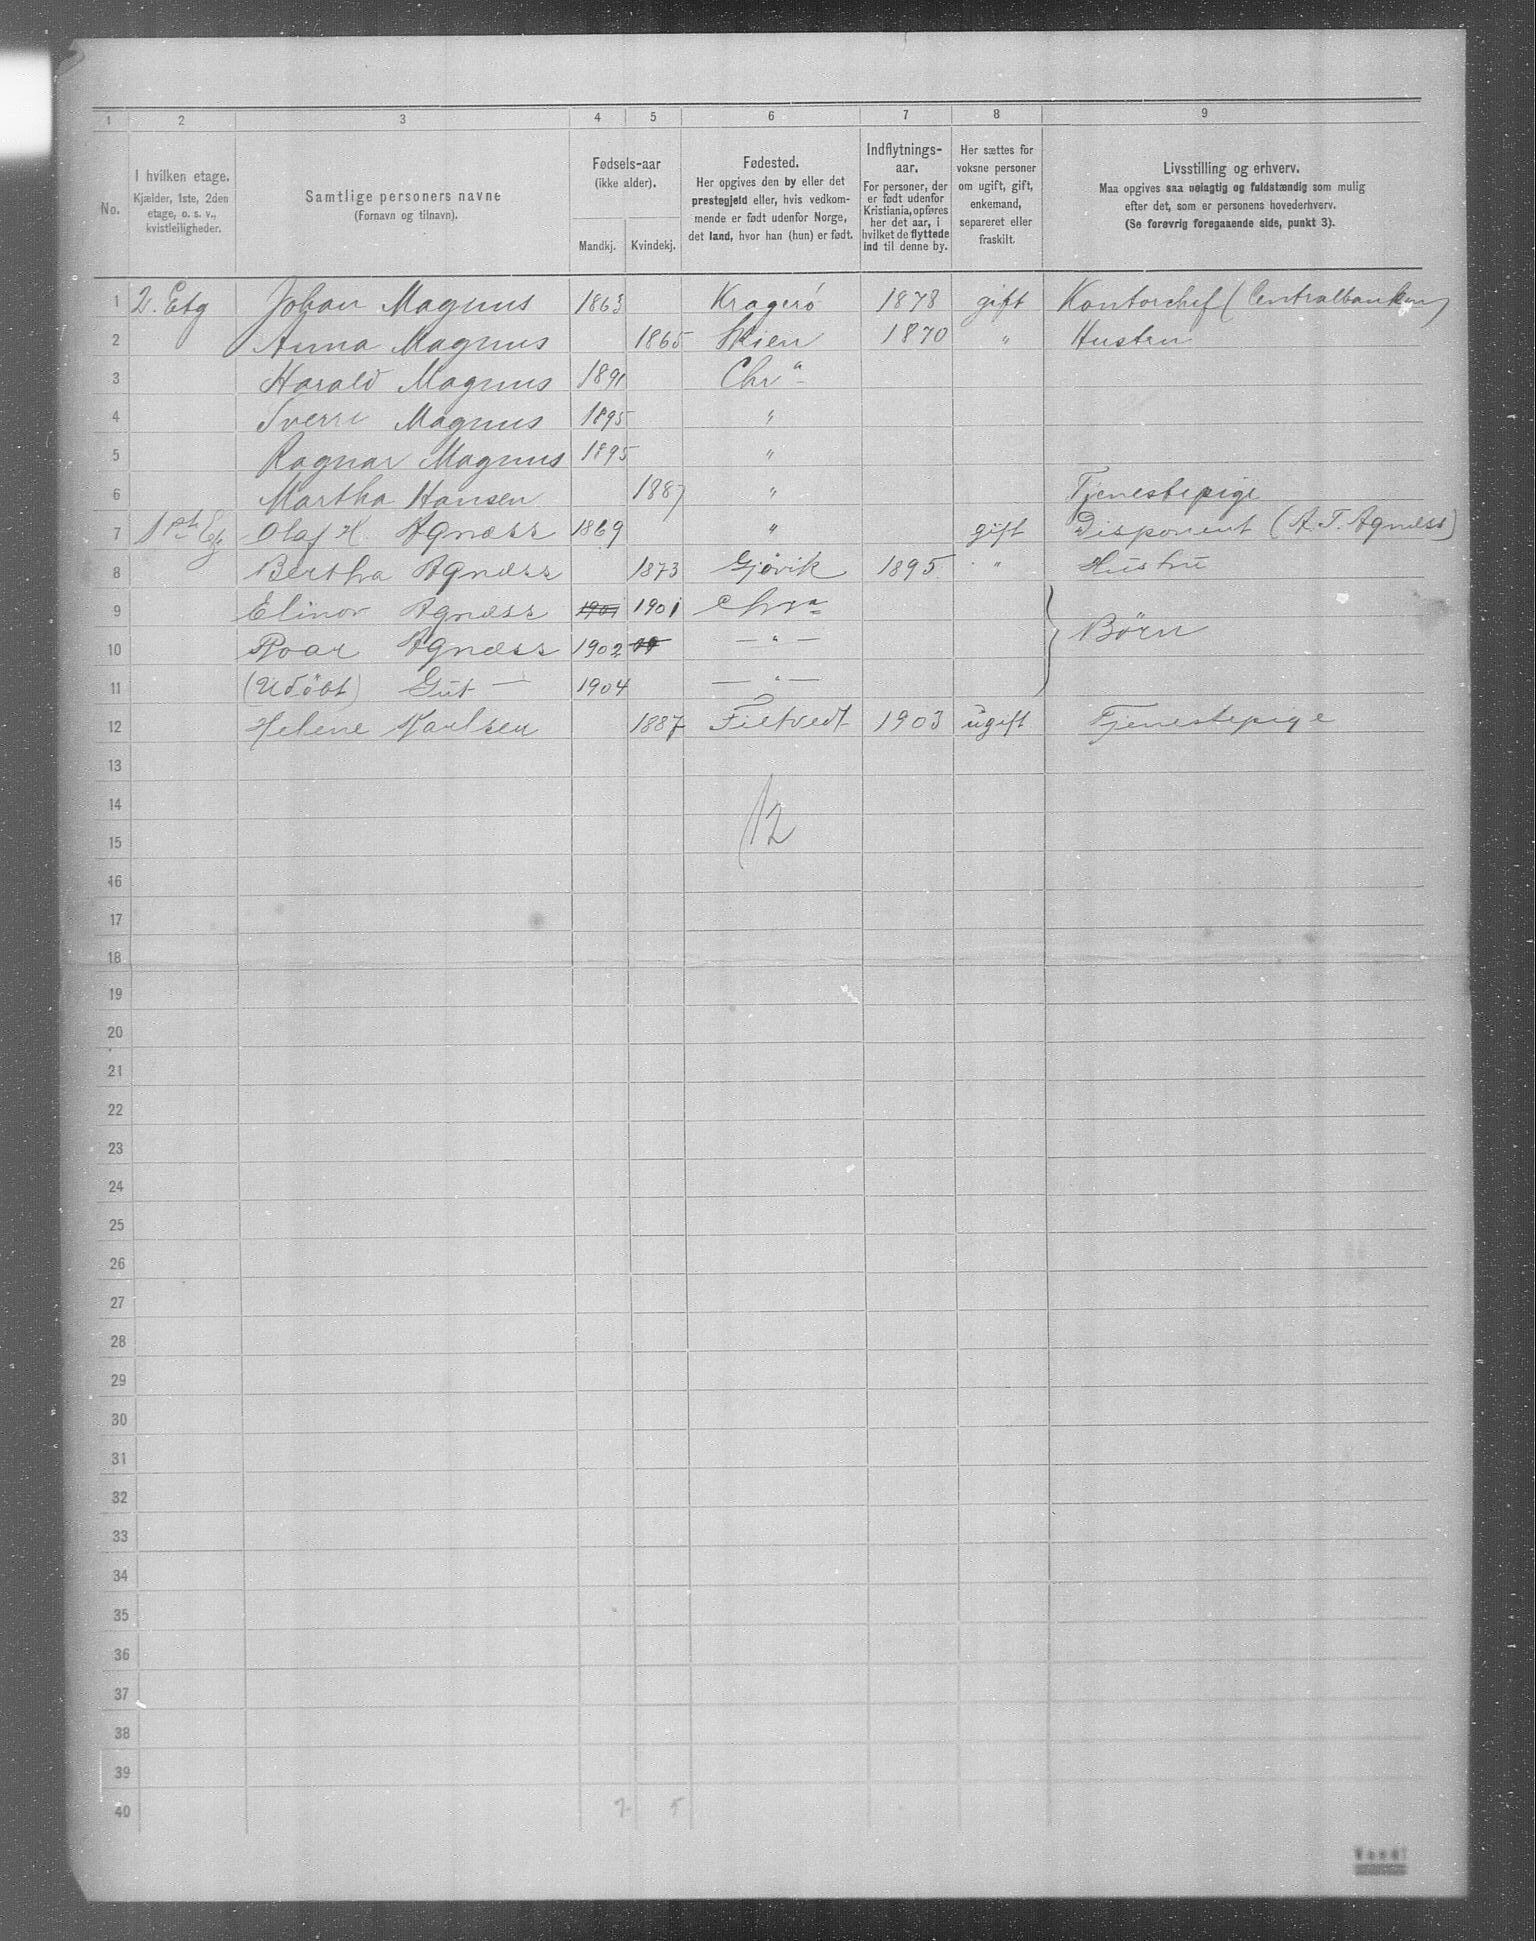 1 2 3 4 5 6 7 8 9
No.
I hvilken etage.
Kjælder, 1ste, 2den
etage, o. s. v.,
kvistleiligheder.
Samtlige personers navne
(Fornavn og tilnavn).
Fødsels-aar
(ikke alder).
Mandkj. Kvindekj.
Fødested.
Her opgives den by eller det
prestegjeld eller, hvis vedkom-
mende er født udenfor Norge,
det land, hvor han (hun) er født.
Indflytnings-
aar.
For personer, der
er født udenfor
Kristiania, opføres
her det aar, i
hvilket de flyttede
ind til denne by.
Her sættes for
voksne personer
om ugift, gift,
enkemand,
separeret eller
fraskilt.
Livsstilling og erhverv.
Maa opgives saa nøiagtig og fuldstændig som mulig
efter det, som er personens hovederhverv.
(Se forøvrig foregaaende side, punkt 3).
1 2. Etg Johan Magnus 1863 Kragerö 1878 gift Kontorchef (Centralbanken)
2 Anna Magnus 1865 Skien 1870 " Hustru
3 Harald Magnus 1891 Chr.a
4 Sverre Magnus 1895 "
5 Ragnar Magnus 1895 "
6 Martha Hansen 1887 " Tjenestepige
7 1ste Etg Olaf H. Agnæss 1869 " gift Disponent (A. T. Agnæss)
8 Bertha Agnæss 1873 Gjövik 1895 " Hustru
9 Elinor Agnæss 1901 1901 Chra
10 Roar Agnæss 1902 — " — Børn
11 (Udöbt) Gut — 1904 — " —
12 Helene Karlsen 1887 Filtvedt 1903 ugift Tjenestepige
13
14
12
15
16
17
18
19
20
21
22
23
24
25
26
27
28
29
30
31
32
33
34
35
36
37
38
39
40 7 5